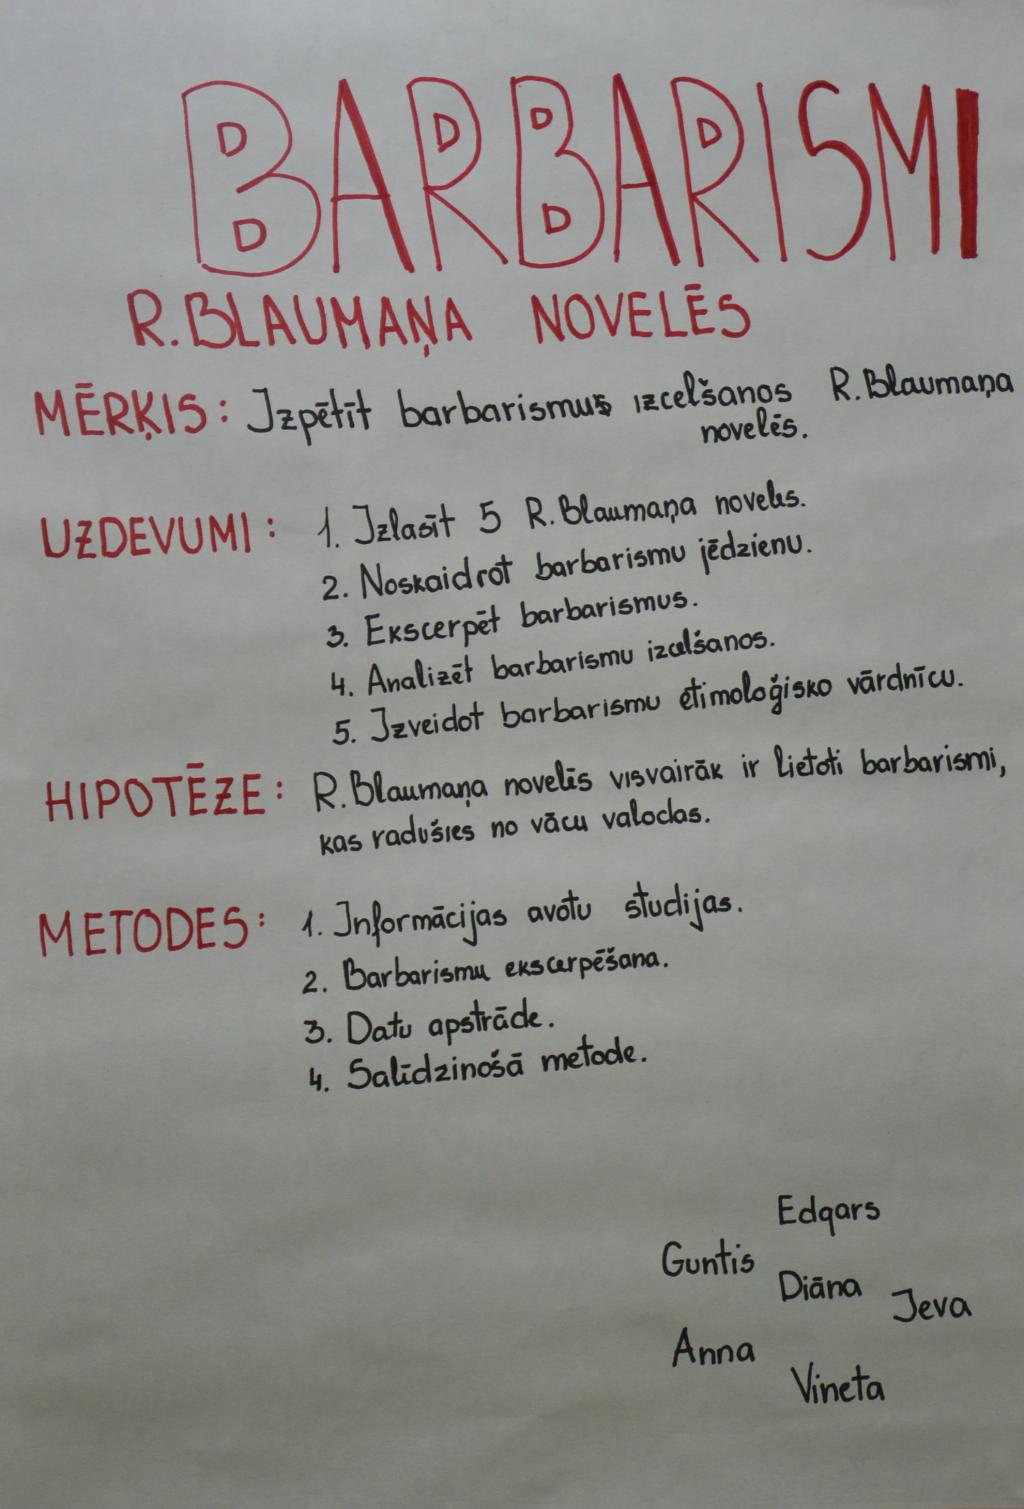 BARBARISMI
R.BLAUMAŅA NOVELĒS
MĒRĶIS: Izpētīt barbarismus izcelšanos R.Blaumaņa
novelēs.
UZDEVUMI: 1. Izlasīt 5 R.Blaumaņa noveles.
2. Noskaidrot barbarismu jēdzienu.
3. Ekscerpēt barbarismus.
4. Analizēt barbarismu izcelšanos.
5. Izveidot barbarismu etimoloģisko vārdnīcu.
HIPOTĒZE: R.Blaumaņa novelēs visvairāk ir lietoti barbarismi,
kas radušies no vācu valodas.
METODES: 1. Informācijas avotu studijas.
2. Barbarismu ekscerpēšana.
3. Datu apstrāde.
4. Salīdzinošā metode.
Edgars
Guntis
Diāna
Ieva
Anna
Vineta